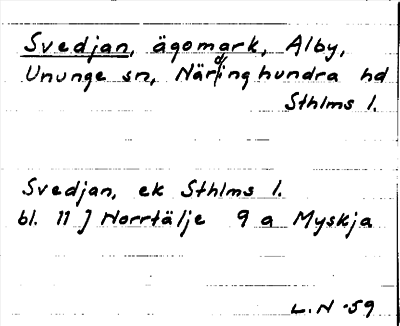 Svedjan, ägomark, Alby,
Ununge sn, Närdinghundra hd
Sthlms l.
Svedjan, ek Sthlms l.
bl. 11 J Norrtälje 9 a Myskja
L.N -59